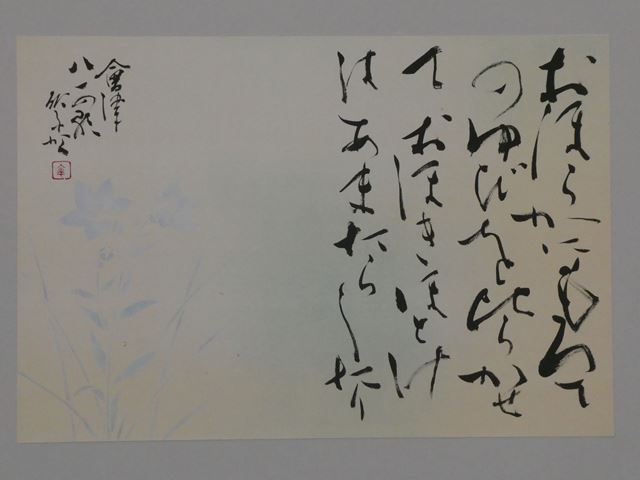 おほらかにもろて
のゆびをひらかせ
ておほきほとけ
はあまたらしたり
會津
八一の歌